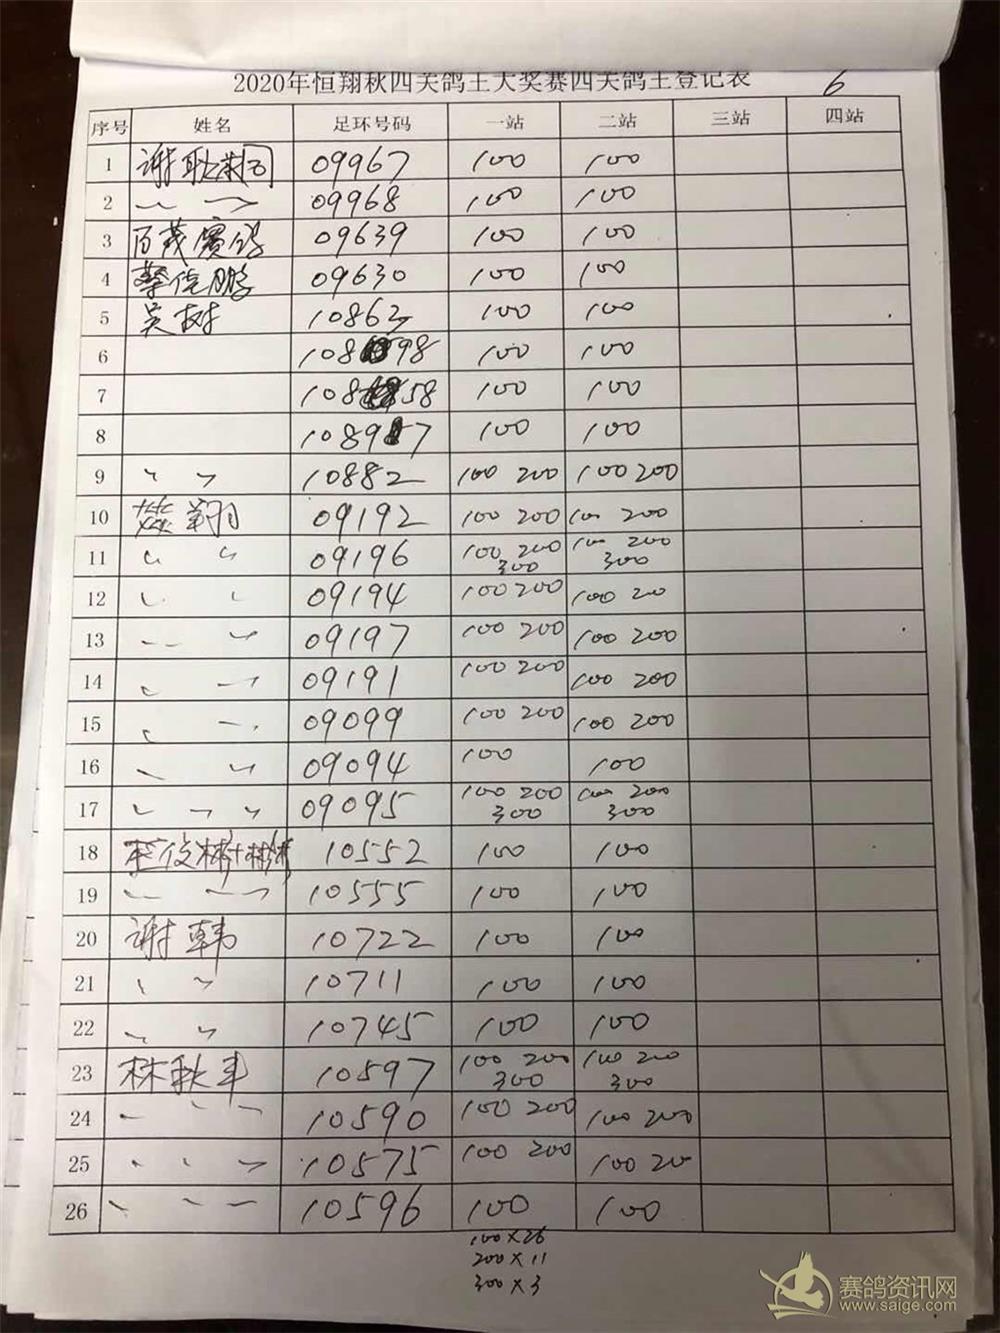 2020年恒翔秋四关鸽王大奖赛四关鸽王登记表 6
序号 姓名 足环号码 一站 二站 三站 四站
1 谢耿 09967 100 100
2 〃 〃 09968 100 100
3 百茂赛鸽 09639 100 100
4 蔡佳鹏 09630 100 100
5 吴树 10863 100 100
6 10898 100 100
7 10858 100 100
8 10897 100 100
9 〃 〃 10882 100 200 100 200
10 翔 09192 100 200 100 200
11 〃 〃 09196 100 200 300 100 200 300
12 〃 〃 09194 100 200 100 200
13 〃 〃 09197 100 200 100 200
14 〃 〃 09191 100 200 100 200
15 〃 〃 09099 100 200 100 200
16 〃 〃 09094 100 100
17 〃 〃 〃 09095 100 200 300 100 200 300
18 10552 100 100
19 〃 〃 10555 100 100
20 谢韩 10722 100 100
21 〃 〃 10711 100 100
22 〃 〃 10745 100 100
23 林秋丰 10597 100 200 300 100 200 300
24 〃 〃 〃 10590 100 200 100 200
25 〃 〃 〃 10575 100 200 100 200
26 〃 〃 〃 10596 100 100
100×26
200×11
300×3
赛鸽资讯网
www.saige.com